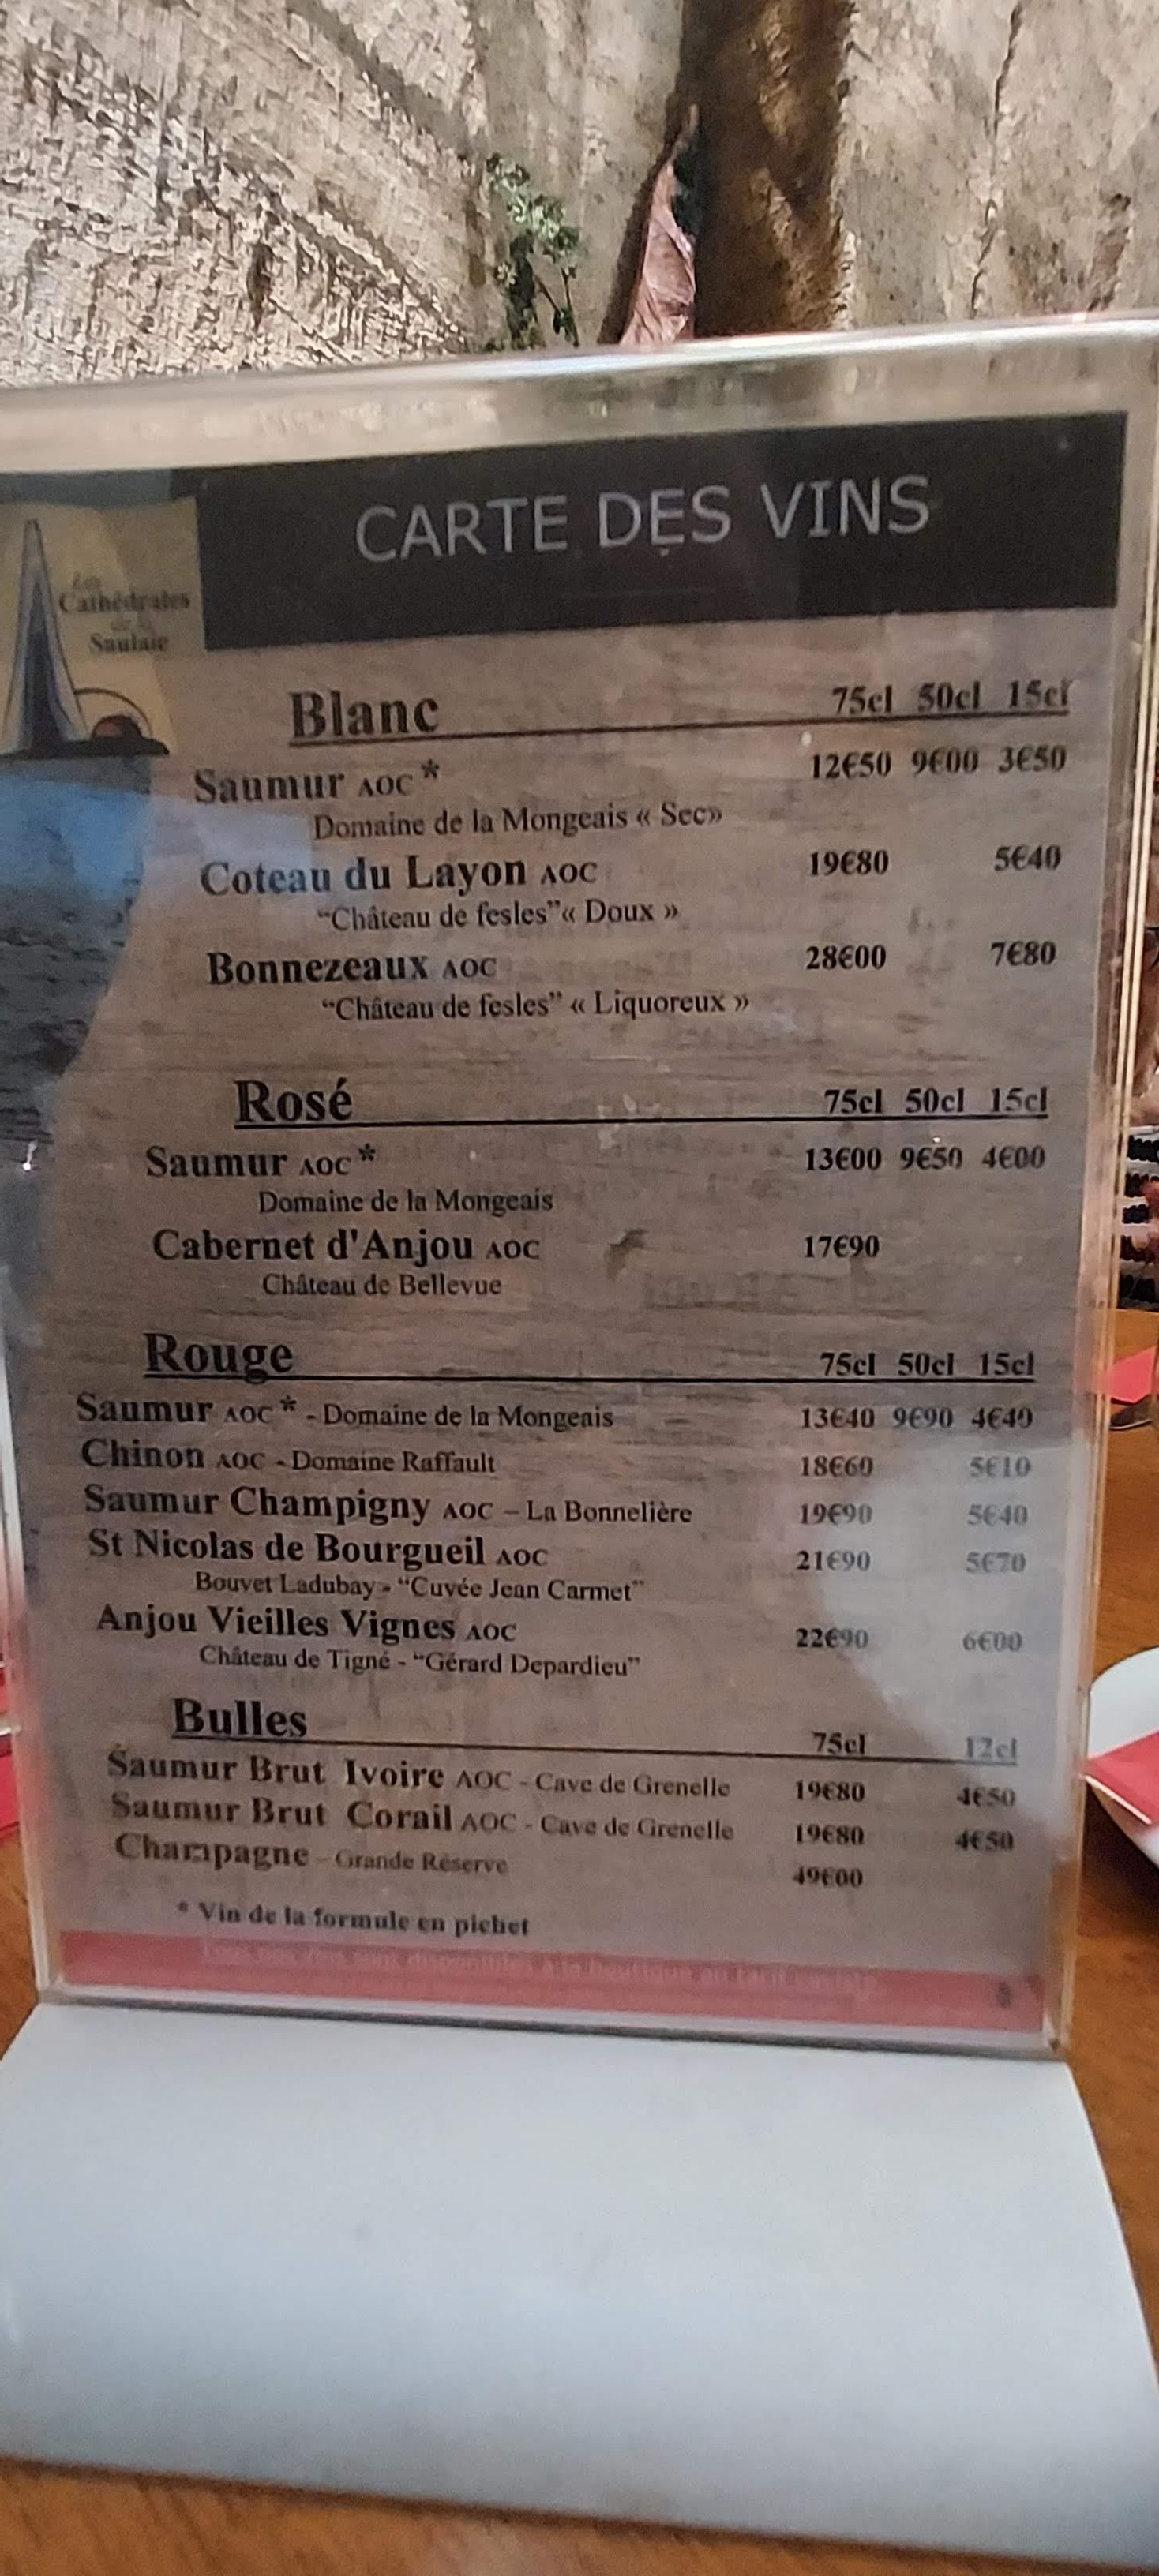 CARTE DES VINS
Les
Cathédrales
de la
Saulaie
Blanc 75cl 50cl 15cl
Saumur AOC * 12€50 9€00 3€50
Domaine de la Mongeais « Sec»
Coteau du Layon AOC 19€80 5€40
“Château de fesles”« Doux »
Bonnezeaux AOC 28€00 7€80
“Château de fesles” « Liquoreux »
Rosé 75cl 50cl 15cl
Saumur AOC * 13€00 9€50 4€00
Domaine de la Mongeais
Cabernet d'Anjou AOC 17€90
Château de Bellevue
Rouge 75cl 50cl 15cl
Saumur AOC * - Domaine de la Mongeais 13€40 9€90 4€40
Chinon AOC - Domaine Raffault 18€60 5€10
Saumur Champigny AOC – La Bonnelière 19€90 5€40
St Nicolas de Bourgueil AOC 21€90 5€70
Bouvet Ladubay - “Cuvée Jean Carmet”
Anjou Vieilles Vignes AOC 22€90 6€00
Château de Tigné - “Gérard Depardieu”
Bulles 75cl 12cl
Saumur Brut Ivoire AOC - Cave de Grenelle 19€80 4€50
Saumur Brut Corail AOC - Cave de Grenelle 19€80 4€50
Champagne - Grande Réserve 49€00
* Vin de la formule en pichet
Tous nos vins sont disponibles à la boutique au tarif